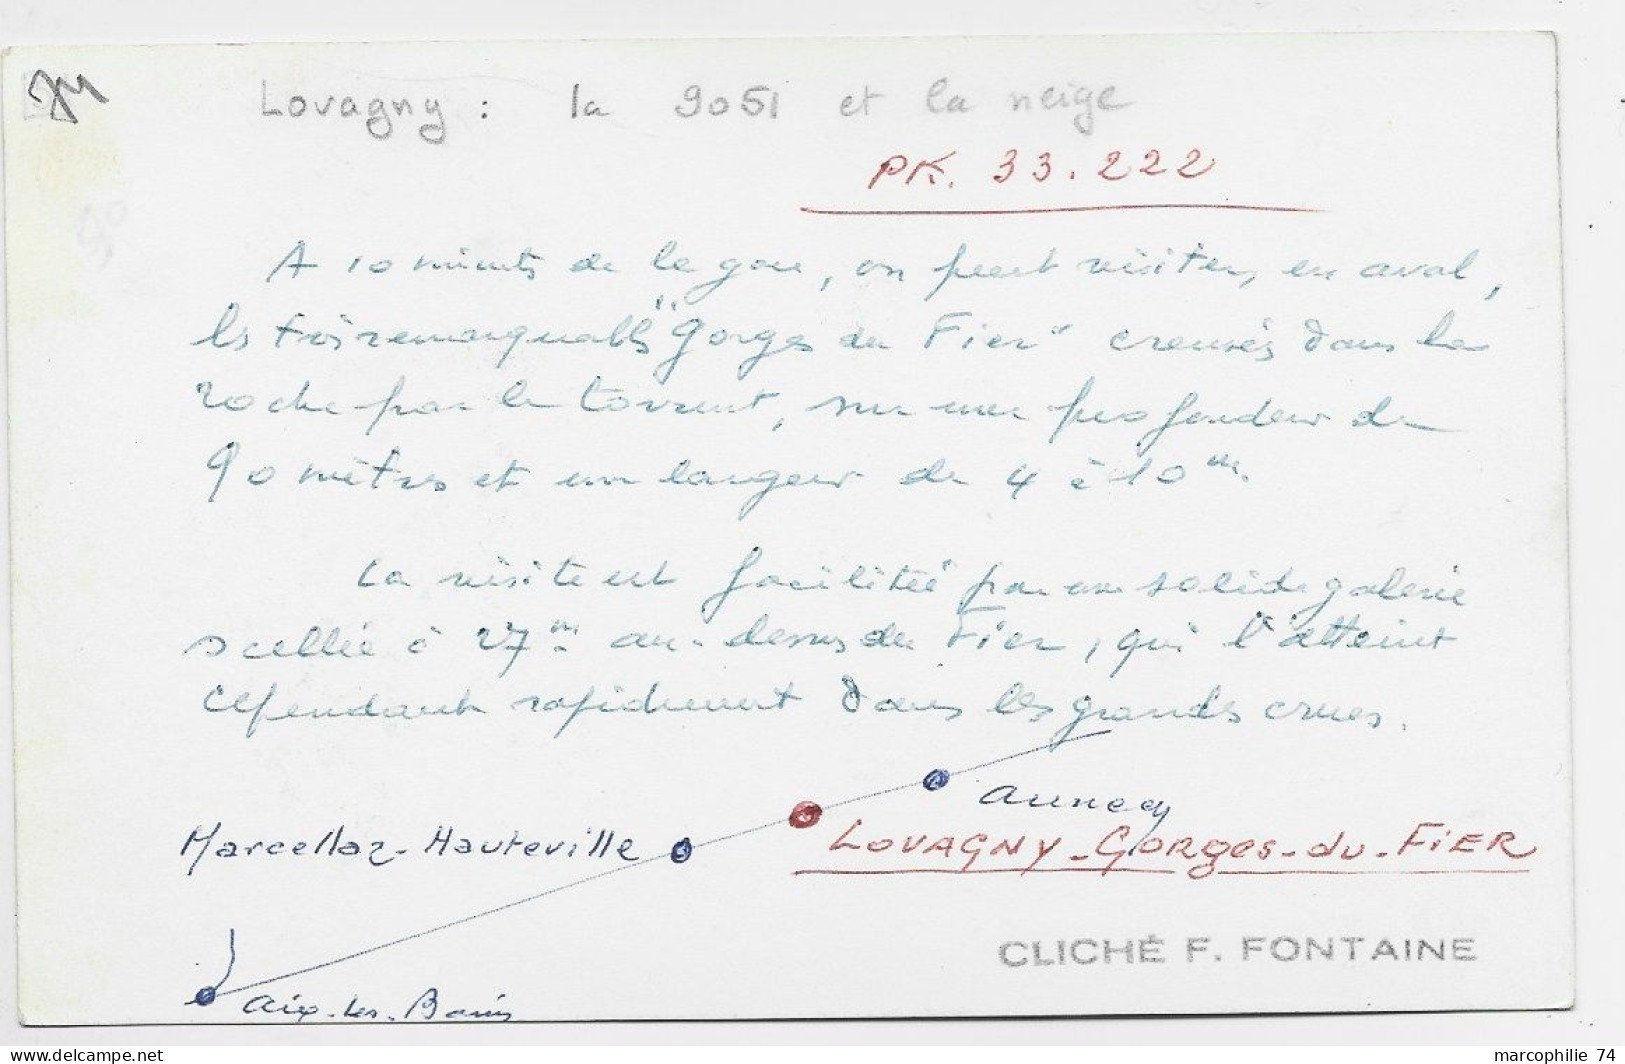 74
Lovagny : la 9051 et la neige
PK. 33.222
A 10 minutes de la gare, on peut visiter, en aval,
les très remarquables "Gorges du Fier" creusées dans la
roche par le torrent, sur une profondeur de
90 mètres et une largeur de 4 à 10 m.
La visite est facilitée par une solide galerie
scellée à 27 m au-dessus du Fier, qui l'atteint
cependant rapidement dans les grandes crues.
Annecy
Marcellaz-Hauteville
LOVAGNY-GORGES-du-FIER
CLICHÉ F. FONTAINE
Aix-les-Bains
marcophilie 74